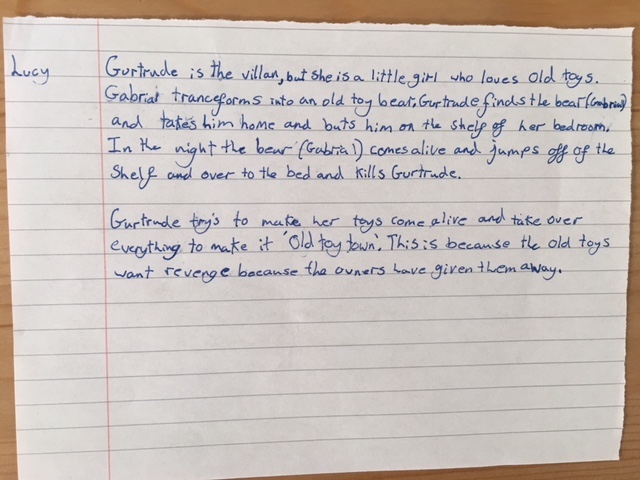 Lucy
Gurtrude is the villan, but she is a little girl who loves old toys.
Gabrial tranceforms into an old toy bear. Gurtrude finds the bear (Gabrial)
and takes him home and buts him on the shelf of her bedroom.
In the night the bear (Gabrial) comes alive and jumps off of the
shelf and over to the bed and kills Gurtrude.
Gurtrude try's to make her toys come alive and take over
everything to make it 'Old toy town'. This is because the old toys
want revenge because the owners have given them away.